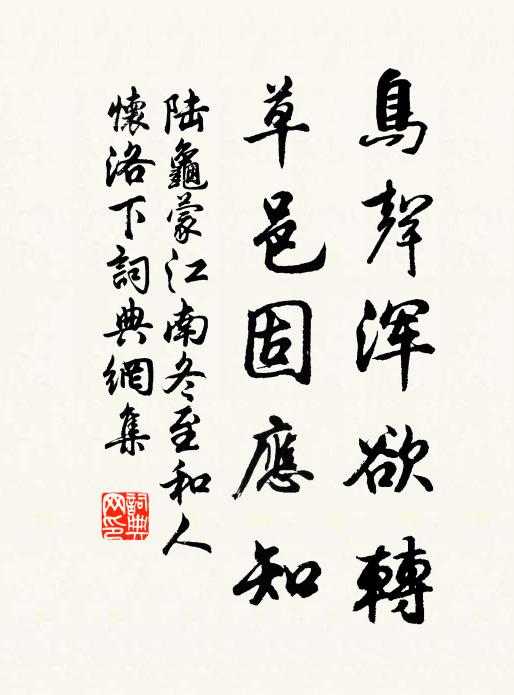 鳥聲渾欲轉
草邑固應知
陸龜蒙江南冬至和人
懷洛下詞典網集
詞典网印